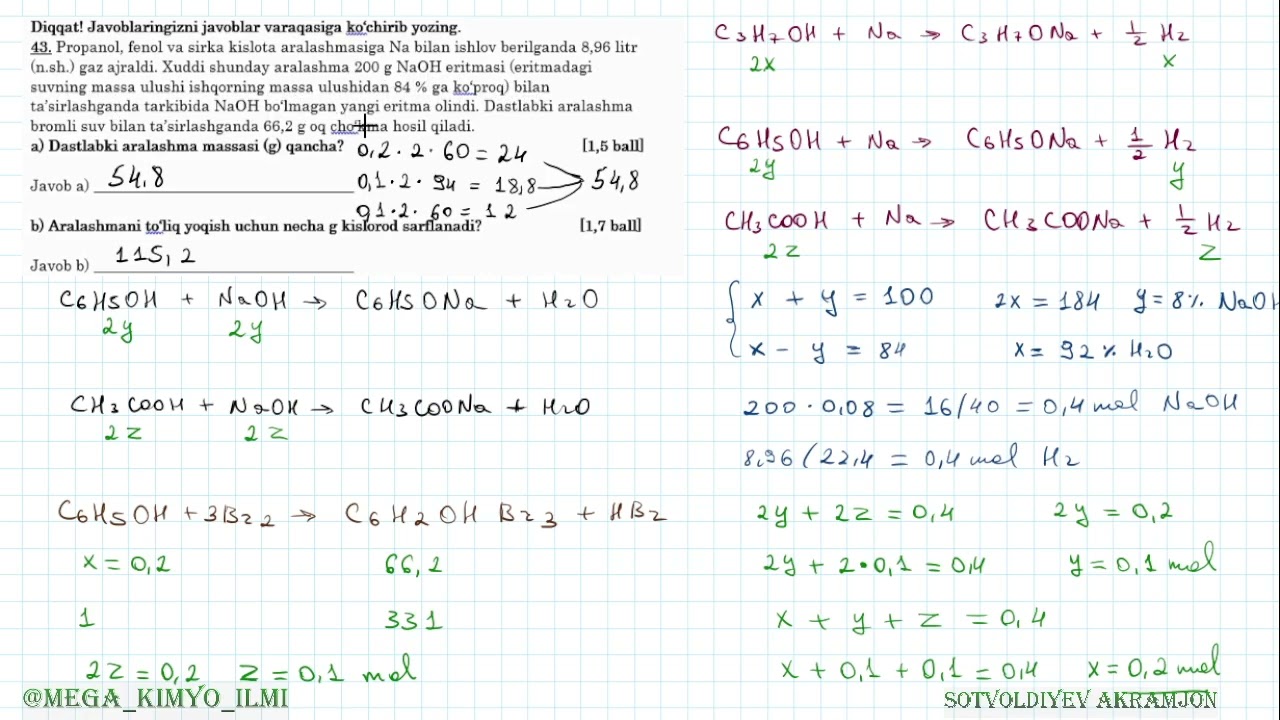 Diqqat! Javoblaringizni javoblar varaqasiga ko‘chirib yozing.
43. Propanol, fenol va sirka kislota aralashmasiga Na bilan ishlov berilganda 8,96 litr
(n.sh.) gaz ajraldi. Xuddi shunday aralashma 200 g NaOH eritmasi (eritmadagi
suvning massa ulushi ishqorning massa ulushidan 84 % ga ko‘proq) bilan
ta’sirlashganda tarkibida NaOH bo‘lmagan yangi eritma olindi. Dastlabki aralashma
bromli suv bilan ta’sirlashganda 66,2 g oq cho‘kma hosil qiladi.
a) Dastlabki aralashma massasi (g) qancha? [1,5 ball]
0,2 · 2 · 60 = 24
Javob a) 54,8
0,1 · 2 · 94 = 18,8
54,8
0,1 · 2 · 60 = 12
b) Aralashmani to‘liq yoqish uchun necha g kislorod sarflanadi? [1,7 ball]
Javob b) 115,2
C6H5OH + NaOH → C6H5ONa + H2O
2y 2y
CH3COOH + NaOH → CH3COONa + H2O
2z 2z
C6H5OH + 3Br2 → C6H2OHBr3 + HBr
x = 0,2 66,2
1 331
2z = 0,2 z = 0,1 mol
C3H7OH + Na → C3H7ONa + 1/2 H2
2x x
C6H5OH + Na → C6H5ONa + 1/2 H2
2y y
CH3COOH + Na → CH3COONa + 1/2 H2
2z z
x + y = 100 2x = 184 y = 8% NaOH
x - y = 84 x = 92% H2O
200 · 0,08 = 16/40 = 0,4 mol NaOH
8,96 / 22,4 = 0,4 mol H2
2y + 2z = 0,4 2y = 0,2
2y + 2 · 0,1 = 0,4 y = 0,1 mol
x + y + z = 0,4
x + 0,1 + 0,1 = 0,4 x = 0,2 mol
@MEGA_KIMYO_ILMI
SOTVOLDIYEV AKRAMJON